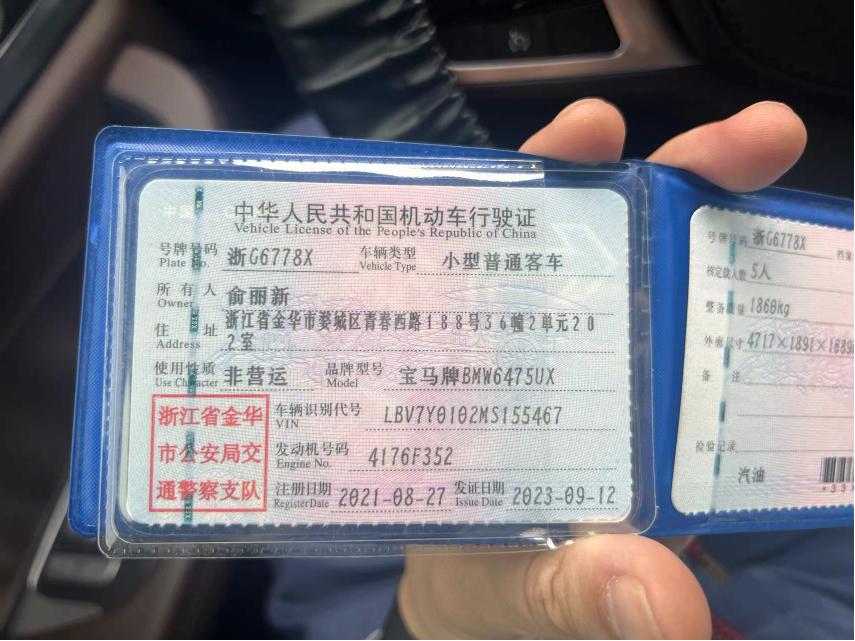 中国
中华人民共和国机动车行驶证
Vehicle License of the People's Republic of China
号牌号码 浙G6778X 车辆类型 小型普通客车
Plate No. Vehicle Type
所有人 俞丽新
Owner
住址 浙江省金华市婺城区青春西路188号36幢2单元20
2室
Address
使用性质 非营运 品牌型号 宝马牌BMW6475UX
Use Character Model
浙江省金华
市公安局交
通警察支队
车辆识别代号 LBV7Y0102MS155467
VIN
发动机号码 4176F352
Engine No.
注册日期 2021-08-27 发证日期 2023-09-12
Register Date Issue Date
号牌号码 浙G6778X 档案
核定载人数 5人
整备质量 1860kg
外廓尺寸 4717×1891×1689
备注
检验记录
汽油